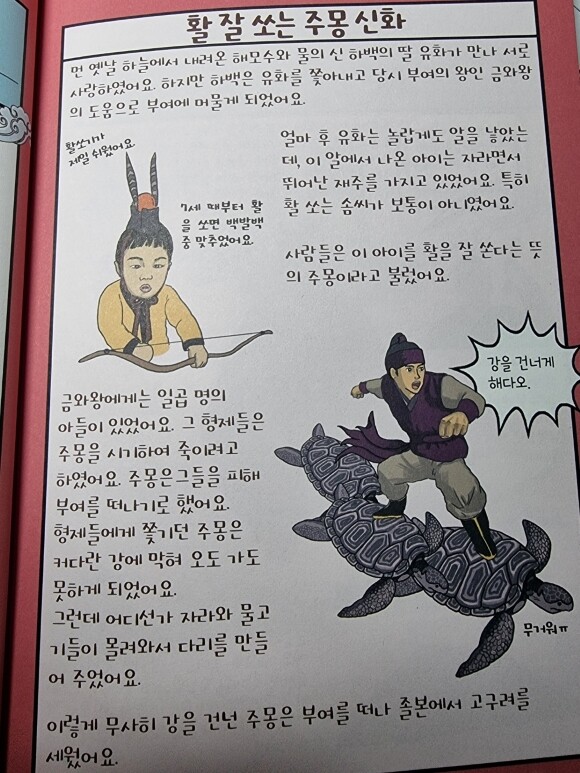 활 잘 쏘는 주몽 신화
먼 옛날 하늘에서 내려온 해모수와 물의 신 하백의 딸 유화가 만나 서로
사랑하였어요. 하지만 하백은 유화를 쫓아내고 당시 부여의 왕인 금와왕
의 도움으로 부여에 머물게 되었어요.
활쏘기가
제일 쉬웠어요
7세 때부터 활
을 쏘면 백발백
중 맞추었어요
얼마 후 유화는 놀랍게도 알을 낳았는
데, 이 알에서 나온 아이는 자라면서
뛰어난 재주를 가지고 있었어요. 특히
활 쏘는 솜씨가 보통이 아니였어요.
사람들은 이 아이를 활을 잘 쏜다는 뜻
의 주몽이라고 불렀어요.
강을 건너게
해다오.
금와왕에게는 일곱 명의
아들이 있었어요. 그 형제들은
주몽을 시기하여 죽이려고
하였어요. 주몽은그들을 피해
부여를 떠나기로 했어요.
형제들에게 쫓기던 주몽은
커다란 강에 막혀 오도 가도
못하게 되었어요.
그런데 어디선가 자라와 물고
기들이 몰려와서 다리를 만들
어 주었어요.
무거워ㅠ
이렇게 무사히 강을 건넌 주몽은 부여를 떠나 졸본에서 고구려를
세웠어요.